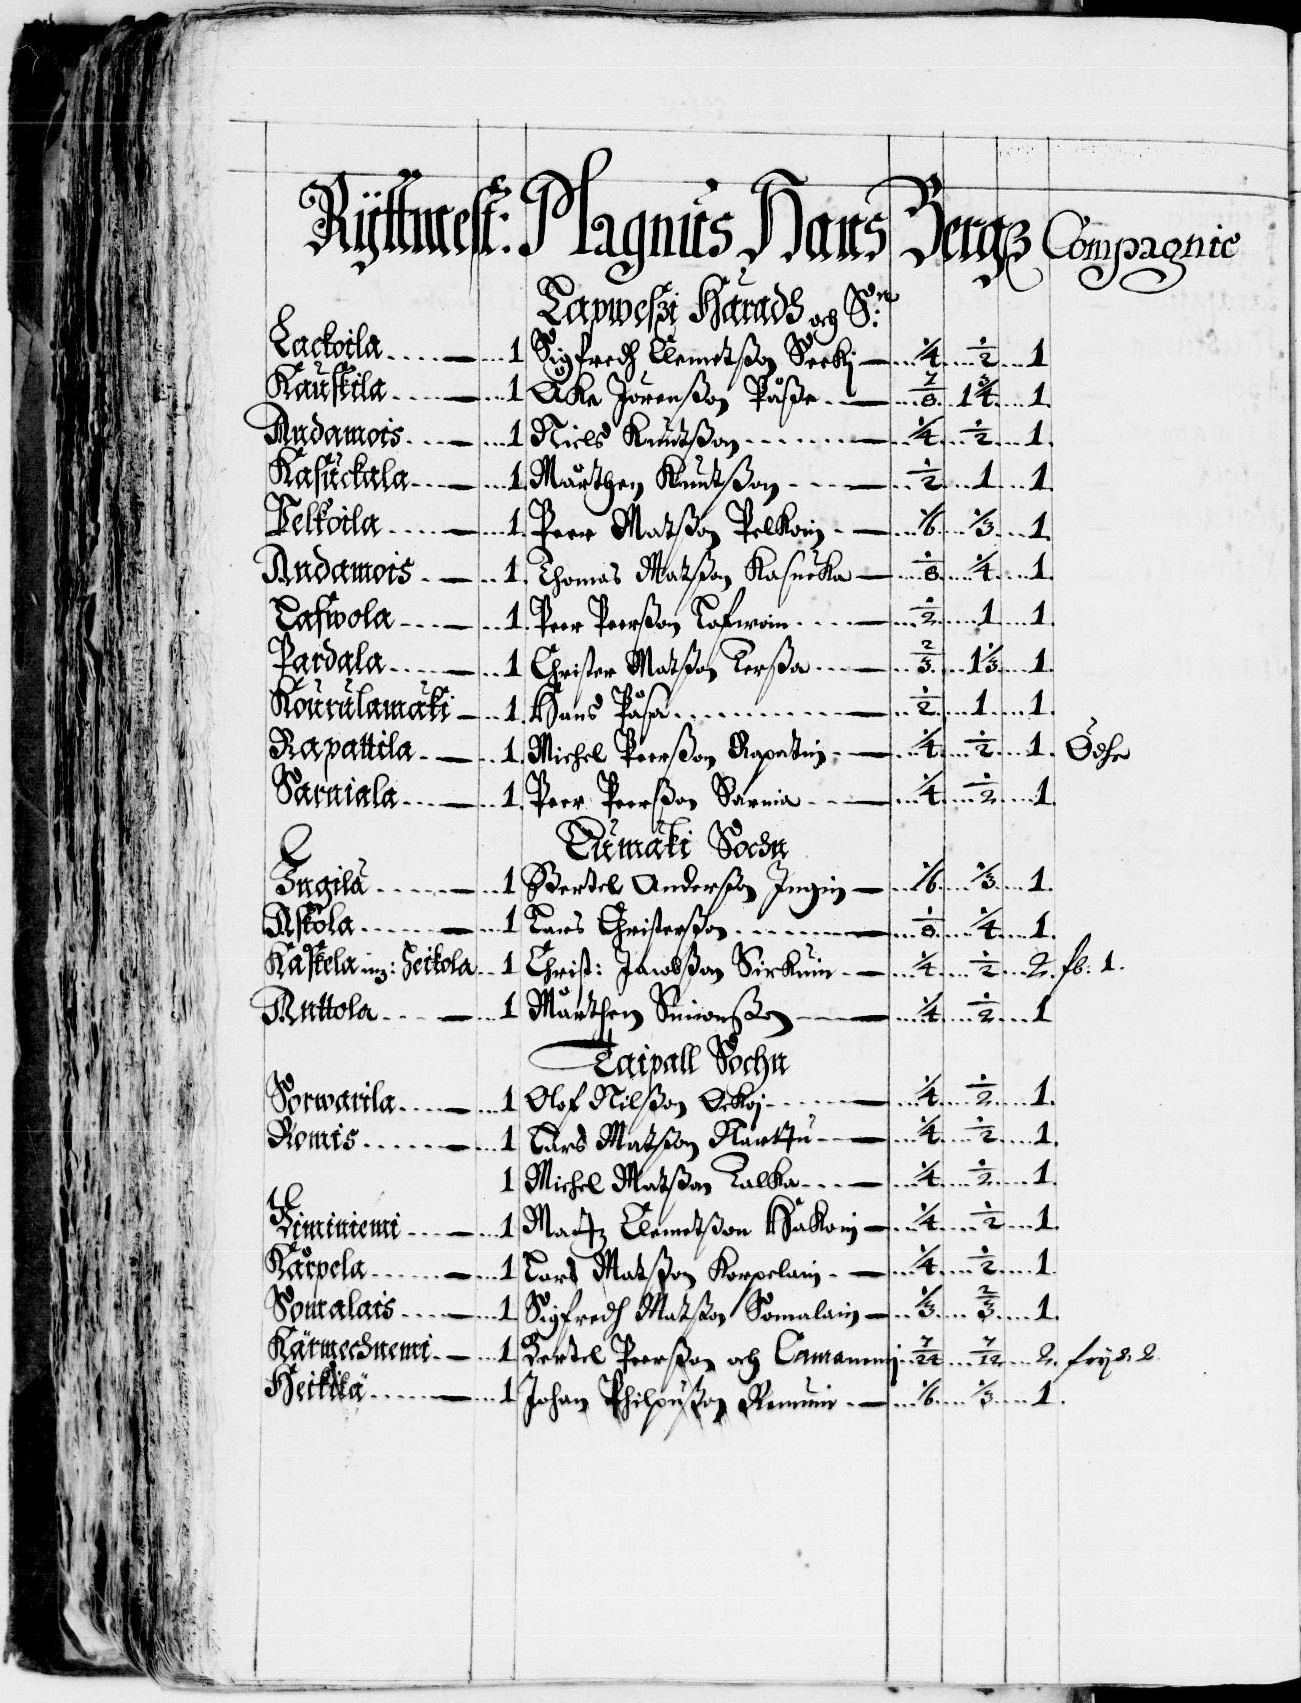 Rÿttmest: Magnus Hans Bergz Compagnie
Lapweszi Häradh och S:n
Lackoila 1 Sigfredh Clemetßon Seekj 1/4 1/2 1
Kauskila 1 Åke Jörenßon Påße 7/8 1 3/4 1
Andamois 1 Niels Knutßon 1/4 1/2 1
Kasuckala 1 Mårthen Knutßon 1/2 1 1
Pelkoila 1 Peer Matßon Pelkoin 1/6 1/3 1
Andamois 1 Thomas Matßon Kasucka 1/8 1/4 1
Lafwola 1 Peer Peerßon Lafwoin 1/2 1 1
Pardala 1 Christer Matßon Terßa 2/3 1 1/3 1
Kourulamäki 1 Hans Påsa 1/2 1 1
Rapattila 1 Michel Peerßon Rapatin 1/4 1/2 1 Ödhe
Sarniala 1 Peer Peerßon Sarnia 1/4 1/2 1
Lumäki Sochn
Ingilä 1 Bertel Anderßon Ingin 1/6 1/3 1
Askola 1 Lars Christerßon 1/8 1/4 1
Kaskela Heikola 1 Christ: Jacobßon Sirkuin 1/4 1/2 2 fb. 1.
Anttola 1 Mårthen Simonßon 1/4 1/2 1
Taipall Sochn
Sorwarila 1 Olof Nilßon 1/4 1/2 1
Romis 1 Lars Matßon Narktu 1/4 1/2 1
1 Michel Matßon Talka 1/4 1/2 1
Viminiemi 1 Matz Clemetßon Håkoin 1/4 1/2 1
Kärpela 1 Lars Matßon Korpelain 1/4 1/2 1
Somalais 1 Sigfredh Matßon Somalain 1/3 2/3 1
Kärmechnemi 1 Bertel Peerßon och 7/24 7/12 2
Heikilä 1 Johan Philpußon Remuin 1/6 1/3 1